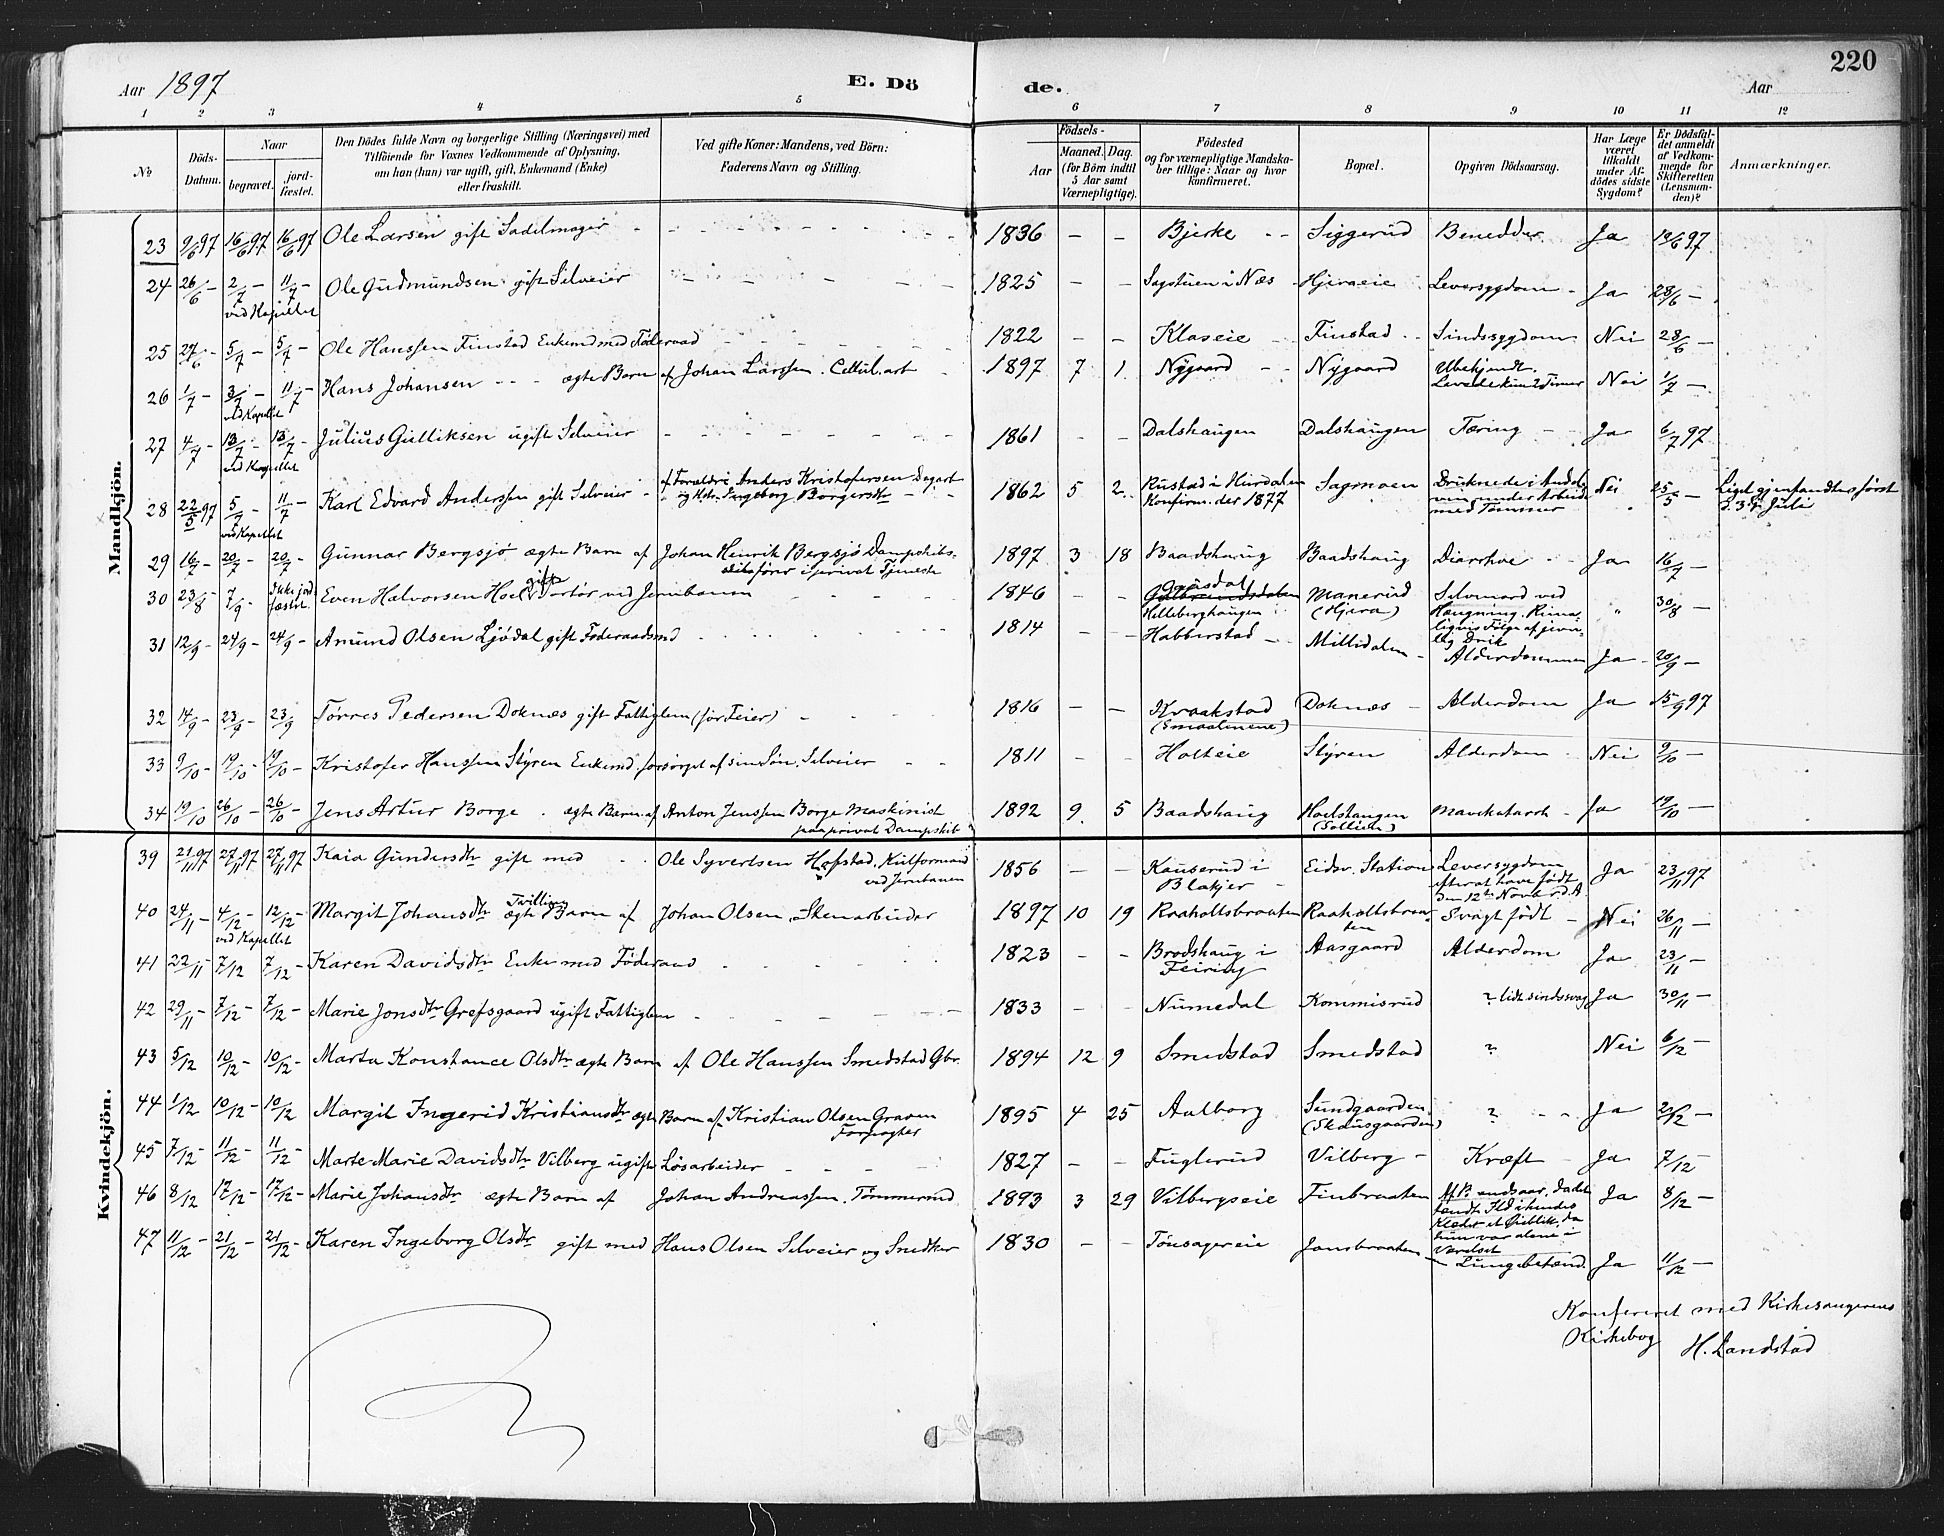 220
Aar 1897
E. Dö
de.
Aar
1 2 3 4 5 6 7 8 9 10 11 12
No
Döds-Datum.
Naar
begravet.
jord-fæstet.
Den Dödes fulde Navn og borgerlige Stilling (Næringsvei) med
Tilföiende for Voxnes Vedkommende af Oplysning,
om han (hun) var ugift, gift, Enkemand (Enke)
eller fraskilt.
Ved gifte Koner: Mandens, ved Börn:
Faderens Navn og Stilling.
Födsels-
Aar
Maaned. Dag.
(for Börn indtil
5 Aar samt
Værnepligtige).
Födested
og for værnepligtige Mandska-
ber tillige: Naar og hvor
konfirmeret.
Bopæl.
Opgiven Dödsaarsag.
Har Læge
været
tilkaldt
under Af-
dödes sidste
Sygdom?
Er Dödsfal-
det anmeldt
af Vedkom-
mende for
Skifteretten
(Lensman-
den)?
Anmærkninger.
Mandkjön.
23 9/6 97 16/6 97 16/6 97 Ole Larsen gift Sadelmager 1836 Bjerke Siggerud Ja 12/6 97
24 26/6 2/7 11/7 Ole Gudmundsen gift Selveier 1825 Sagstuen i Næs Hjeraeie Leversygdom Ja 28/6
ved Kapellet
25 27/6 5/7 5/7 Ole Hanssen Finstad Enkemd med Föderaad 1822 Klaseie Finstad Sindssygdom Nei 28/6
26 1/7 3/7 11/7 Hans Johansen ægte Barn af Johan Larssen Cellul.arb 1897 7 1 Nygaard Nygaard Ubekjendt. Nei 1/7
ved Kapellet
Levede kun 2 Timer
27 4/7 13/7 13/7 Julius Gulliksen ugift Selveier 1861 Dalshaugen Dalshaugen Tæring Ja 6/7 97
ved Kapellet
28 22/5 97 5/7 11/7 Karl Edvard Anderssen gift Selveier af Forældre Anders Kristofersen Dagarb 1862 5 2 Rustad i Hurdalen Sagmoen Druknede i Andels- Nei 25/5 Liget gjenfandtes först
ved Kapellet
og Hstr. Ingeborg Borgersdtr Konfirm. der 1877 ven under Arbeide
med Tömmer
d. 3die Juli
29 16/7 20/7 20/7 Gunnar Bergsjö ægte Barn af Johan Henrik Bergsjö Dampskibs- 1897 3 18 Baadshaug Baadshaug Diarrhoe Ja 16/7
förer i privat Tjeneste
30 23/8 7/9 Ikke jordfæstet. Even Halvorsen Hoel gift Portör ved Jernbanen 1846 Helleberghaugen Manerud (Hjera) Selvmord ved 30/8
Hængning. Rime-
ligvis Fölge af jevn-
lig Drik
31 12/9 24/9 24/9 Amund Olsen Ljödal gift Föderaadsmd 1814 Habberstad Millidalen Alderdommen Ja 20/9
32 14/9 23/9 23/9 Törres Pedersen Doknæs gift Fattiglem (för Feier) 1816 Kraakstad Doknæs Alderdom Ja 15/9 97
(Smaalenene)
33 9/10 19/10 19/10 Kristofer Hanssen Styren Enkemd forsörget af sin Sön. Selveier 1811 Holteie Styren Alderdom Nei 9/10
34 19/10 26/10 26/10 Jens Artur Borge ægte Barn af Anton Jenssen Borge Maskinist 1892 9 5 Baadshaug Hoelshaugen Mavekatarrh Ja 19/10
paa privat Dampskib
Kvindekjön.
39 21/11 97 27/11 97 27/11 97 Kaia Gundersdtr gift med Ole Syvertsen Hofstad. Kulformand 1856 Kauserud i Eidsv. Station Leversygdom Ja 23/11 97
ved Jernbanen Blakjer efter at have födt
den 12te Novbr d. A
40 24/11 4/12 12/12 Margit Johansdtr Tvilling ægte Barn af Johan Olsen Stenarbeider 1897 10 19 Raaholtsbraaten Raaholtsbraaten Svagt födt Nei 26/11
ved Kapellet
41 22/11 7/12 7/12 Karen Davidsdtr Enke med Föderaad 1823 Brodshaug i Aasgaard Alderdom Ja 23/11
Feiring
42 29/11 7/12 7/12 Marie Jonsdtr Grefsgaard ugift Fattiglem 1833 Numedal Kommisrud ? lidt sindssvag Ja 30/11
43 5/12 10/12 10/12 Marta Konstance Olsdtr ægte Barn af Ole Hanssen Smedstad Gbr. 1894 12 9 Smedstad Smedstad ? Nei 6/12
44 1/12 10/12 10/12 Margit Ingerid Kristiansdtr ægte Barn af Kristian Olsen Graven 1895 4 25 Aalborg Sundgaarden ? Ja 2/12
Forpagter (Skausgaarden)
45 7/12 11/12 11/12 Marte Marie Davidsdtr Vilberg ugift Lösarbeider 1827 Fuglerud Vilberg Kræft Ja 7/12
46 8/12 17/12 17/12 Marie Johansdtr ægte Barn af Johan Andreassen. Tömmermd 1893 3 29 Vilbergseie Finbraaten Ja 8/12
tændt Ild i hendes
Klæder et Öieblik, da
hun var alene i
Værelset
47 11/12 21/12 21/12 Karen Ingeborg Olsdtr gift med Hans Olsen Selveier og Snedker 1830 Tönsagereie Jonsbraaten Lungebetænd. Ja 11/12
Konfereret med Kirkesangerens
Kirkebog H. Landstad